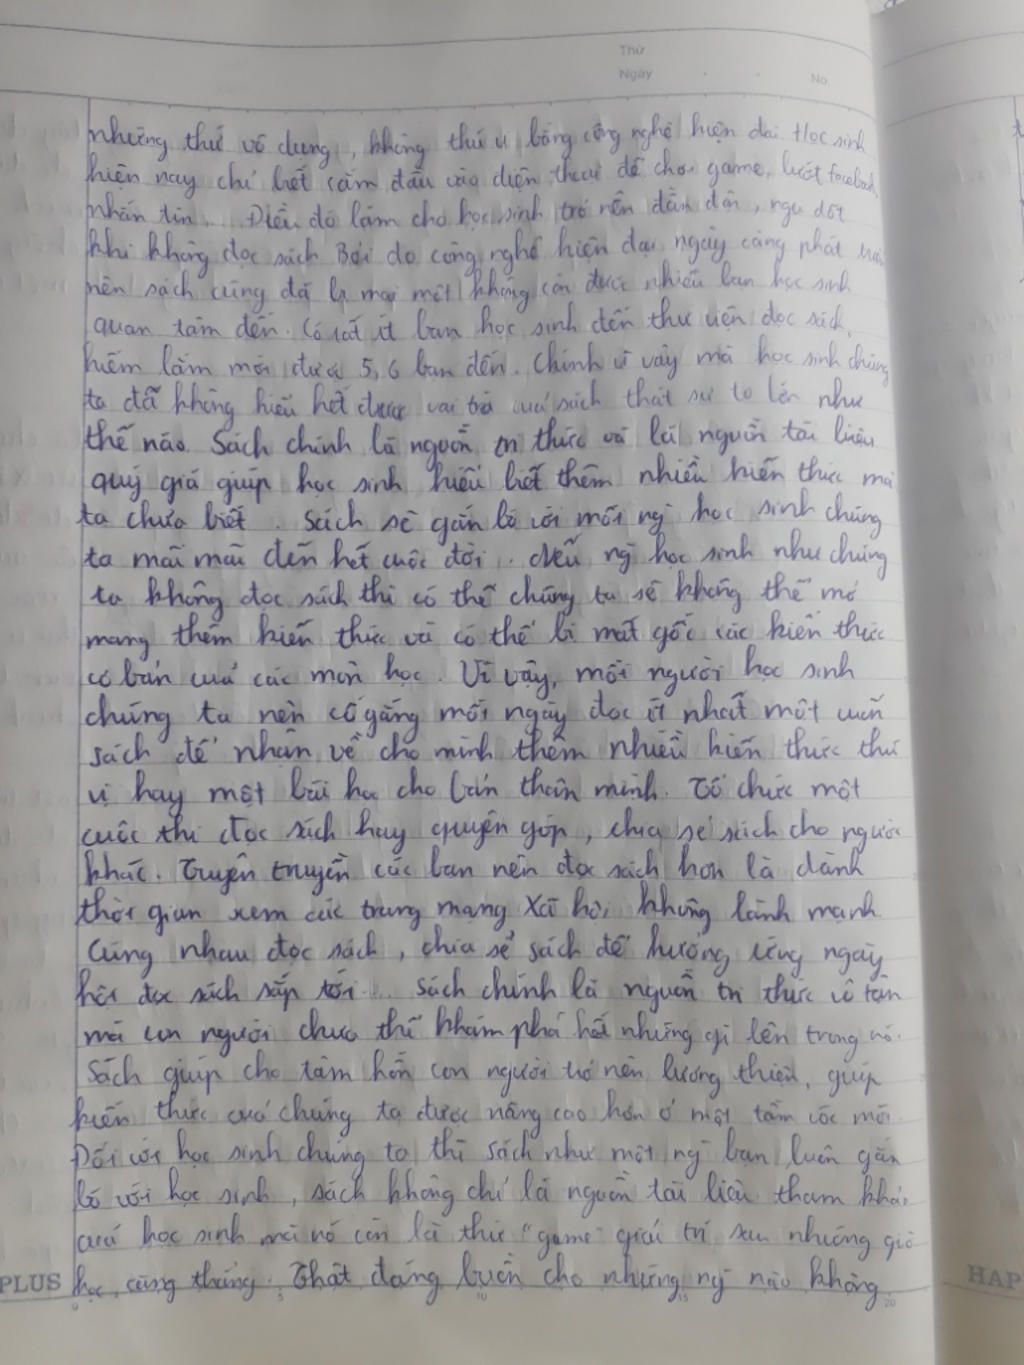 Thứ
Ngày
No.
những thứ vô dụng, không thú vị bằng công nghệ hiện đại. Học sinh
hiện nay chỉ biết cắm đầu vào điện thoại để chơi game, lướt facebook
nhắn tin... Điều đó làm cho học sinh trở nên đần độn, ngu dốt
khi không đọc sách. Bởi do công nghệ hiện đại ngày càng phát triển
nên sách cũng đã bị mai một không còn được nhiều bạn học sinh
quan tâm đến. Có rất ít bạn học sinh đến thư viện đọc sách,
hiếm lắm mới được 5, 6 bạn đến. Chính vì vậy mà học sinh chúng
ta đã không hiểu hết được vai trò của sách thật sự to lớn như
thế nào. Sách chính là nguồn tri thức và là nguồn tài liệu
quý giá giúp học sinh hiểu biết thêm nhiều kiến thức mà
ta chưa biết. Sách sẽ gắn bó với mỗi ng` học sinh chúng
ta mãi mãi đến hết cuộc đời. Nếu ng` học sinh như chúng
ta không đọc sách thì có thể chúng ta sẽ không thể mở
mang thêm kiến thức và có thể bị mất gốc các kiến thức
cơ bản của các môn học. Vì vậy, mỗi người học sinh
chúng ta nên cố gắng mỗi ngày đọc ít nhất một cuốn
sách để nhận về cho mình thêm nhiều kiến thức thú
vị hay một bài học cho bản thân mình. Tổ chức một
cuộc thi đọc sách hay quyên góp, chia sẻ sách cho người
khác. Truyên truyền các bạn nên đọc sách hơn là dành
thời gian xem các trang mạng xã hội không lành mạnh
Cùng nhau đọc sách, chia sẻ sách để hưởng ứng ngày
hội đọc sách sắp tới... Sách chính là nguồn tri thức vô tận
mà con người chưa thể khám phá hết những gì bên trong nó.
Sách giúp cho tâm hồn con người trở nên lương thiện, giúp
kiến thức của chúng ta được nâng cao hơn ở một tầm cốc mới.
Đối với học sinh chúng ta thì sách như một ng` bạn luôn gắn
bó với học sinh, sách không chỉ là nguồn tài liệu tham khảo
của học sinh mà nó còn là thứ "game" giải trí sau những giờ
học căng thẳng. Thật đáng buồn cho những ng` nào không
PLUS
5
10
15
20
HAP